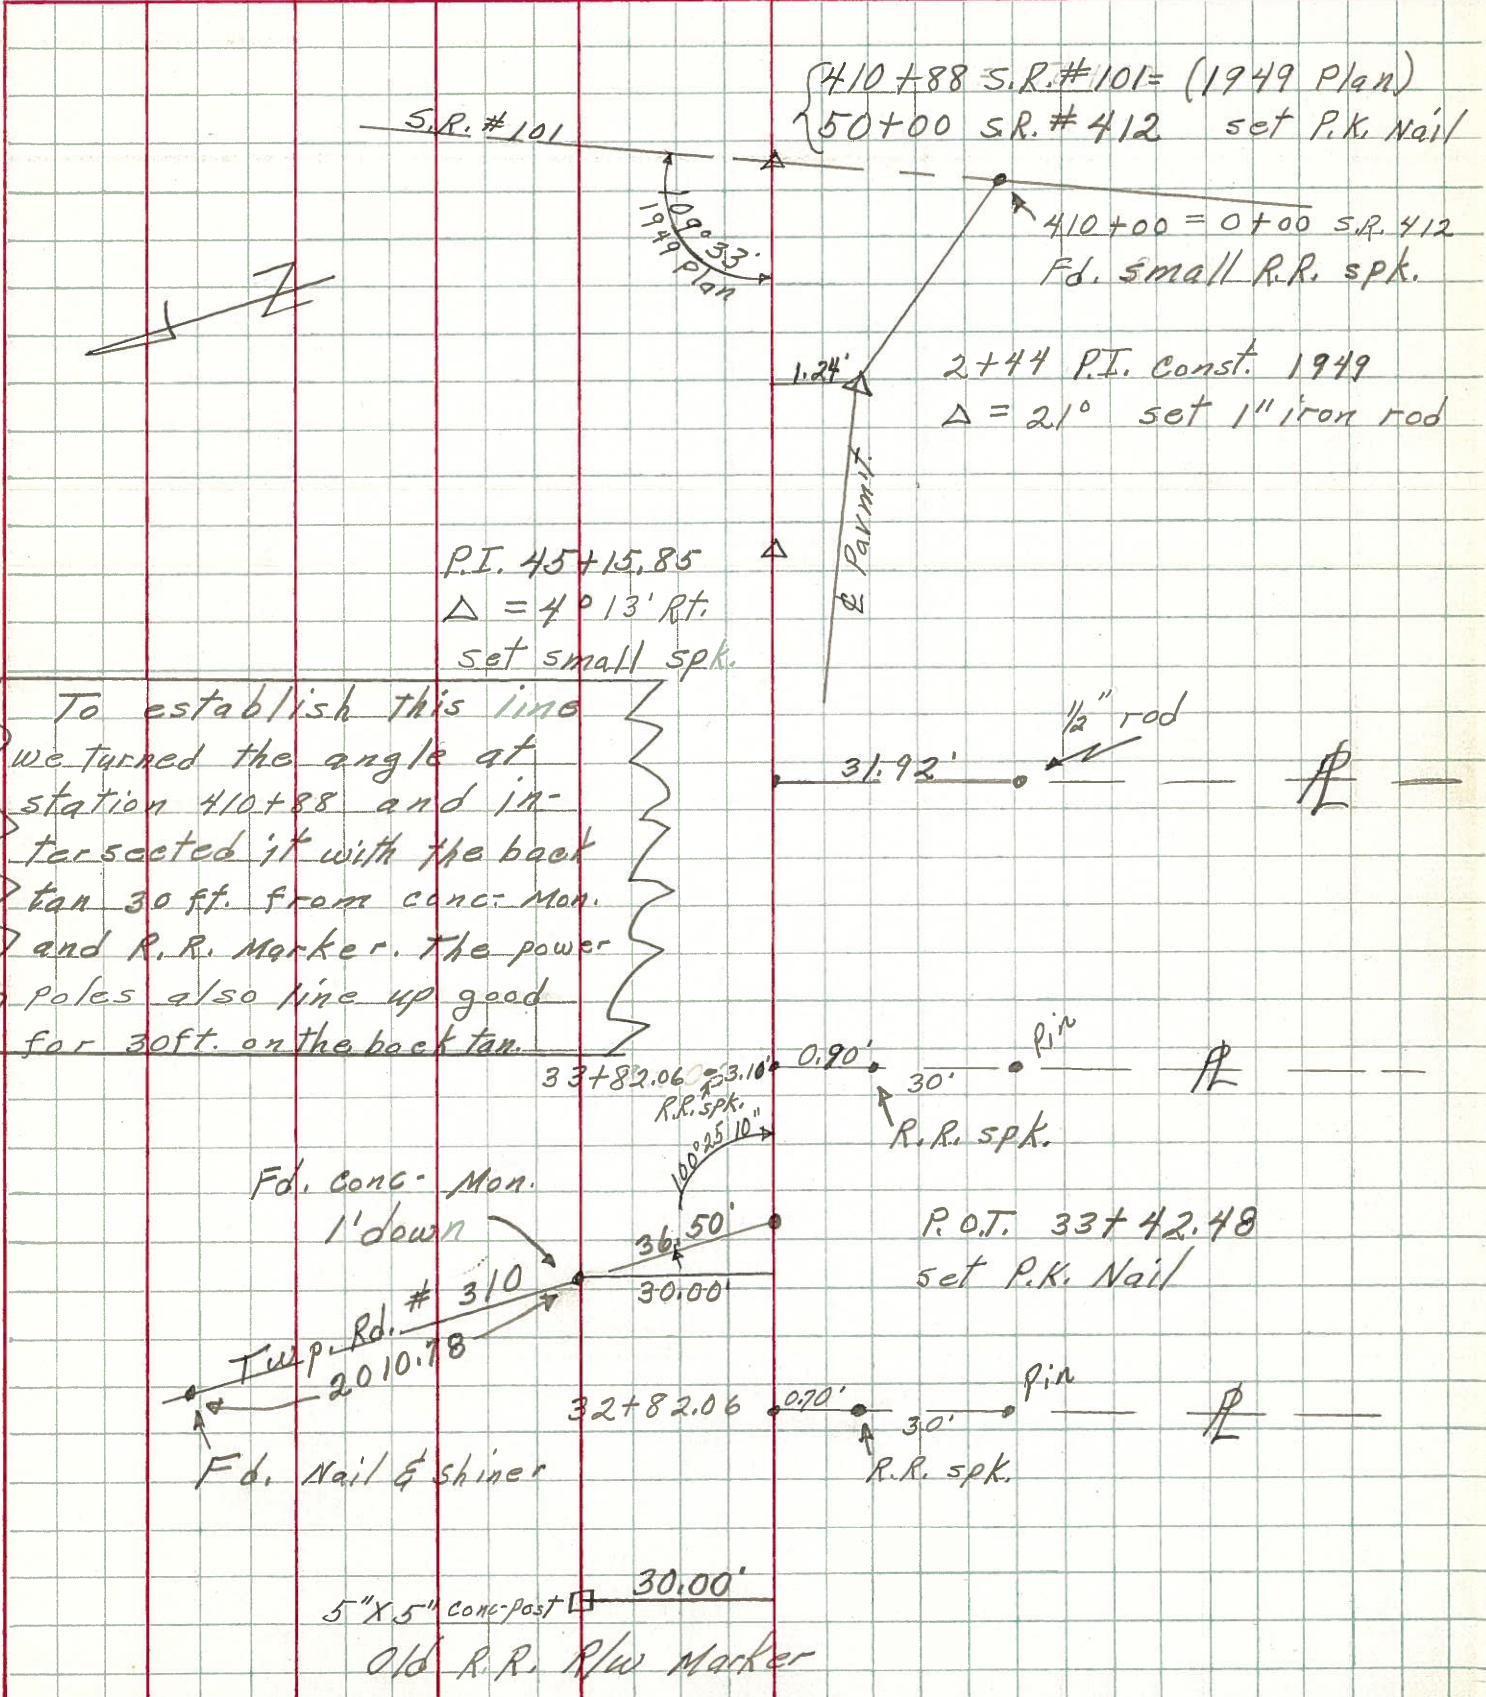 410+88 S.R.#101= (1949 Plan)
50+00 S.R.#412 set P.K. Nail
S.R. #101
109°33'
1949 Plan
410+00 = 0+00 S.R. 412
Fd. small R.R. spk.
N
1.24'
2+44 P.I. Const. 1949
△ = 21° set 1" iron rod
℄ Pavm't.
P.I. 45+15.85
△ = 4°13' Rt.
set small spk.
To establish this line
we turned the angle at
station 410+88 and in-
tersected it with the back
tan 30 ft. from conc- Mon.
and R.R. Marker. The power
poles also line up good
for 30ft. on the back tan.
1/2" rod
31.92'
PL
33+82.06
3.10'
R.R. spk.
0.90'
30'
Pin
PL
R.R. spk.
100°25'10"
Fd. Conc- Mon.
1' down
36.50'
30.00'
P.O.T. 33+42.48
set P.K. Nail
Twp. Rd. # 310
2010.78
Fd. Nail & shiner
32+82.06
0.70'
30'
Pin
PL
R.R. spk.
30.00'
5"X5" conc-post
Old R.R. R/W Marker